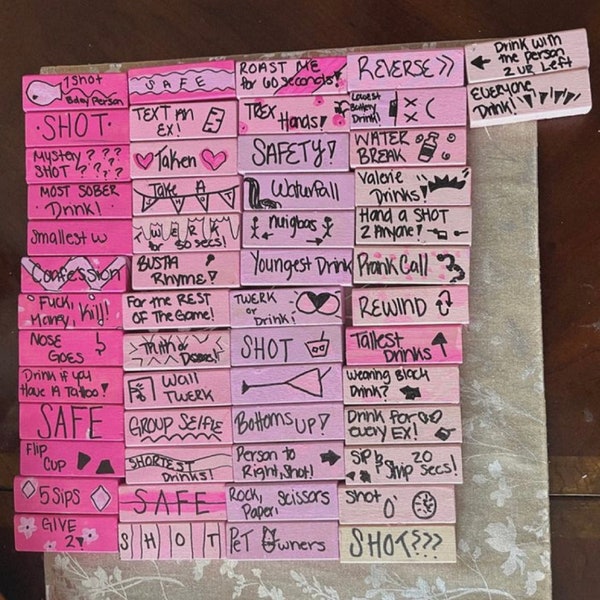 1 Shot
Bday Person
SHOT
Mystery ? ? ?
SHOT ? ? ?
MOST SOBER
Drink!
Smallest W
Confession
Fuck,
Marry, Kill!
NOSE
GOES
Drink if you
Have A Tattoo!
SAFE
Flip
Cup
5 Sips
GIVE
2!
SAFE
TEXT AN
EX!
Taken
Take A
TWERK
for 60 secs!
BUSTA
Rhyme!
For the REST
OF The Game!
Truth or
Dare!
Wall
TWERK
GROUP SELFIE
SHORTEST
Drinks!
SAFE
SHOT
ROAST ME
for 60 seconds!
TREX
Hands!
SAFETY!
Waterfall
Youngest Drink
TWERK
or
Drink!
SHOT
Bottoms UP!
Person to
Right, Shot!
Rock, Scissors
Paper!
PET Owners
REVERSE >>
Lowest
Battery
Drink!
WATER
BREAK
Valerie
Drinks!
Hand a SHOT
2 Anyone!
Prank Call
REWIND
Tallest
Drinks
Wearing Black
Drink?
Drink for
every EX!
20
secs!
Shot
O'
SHOT???
Drink with
the person
2 UR Left
EVERYONE
Drink!